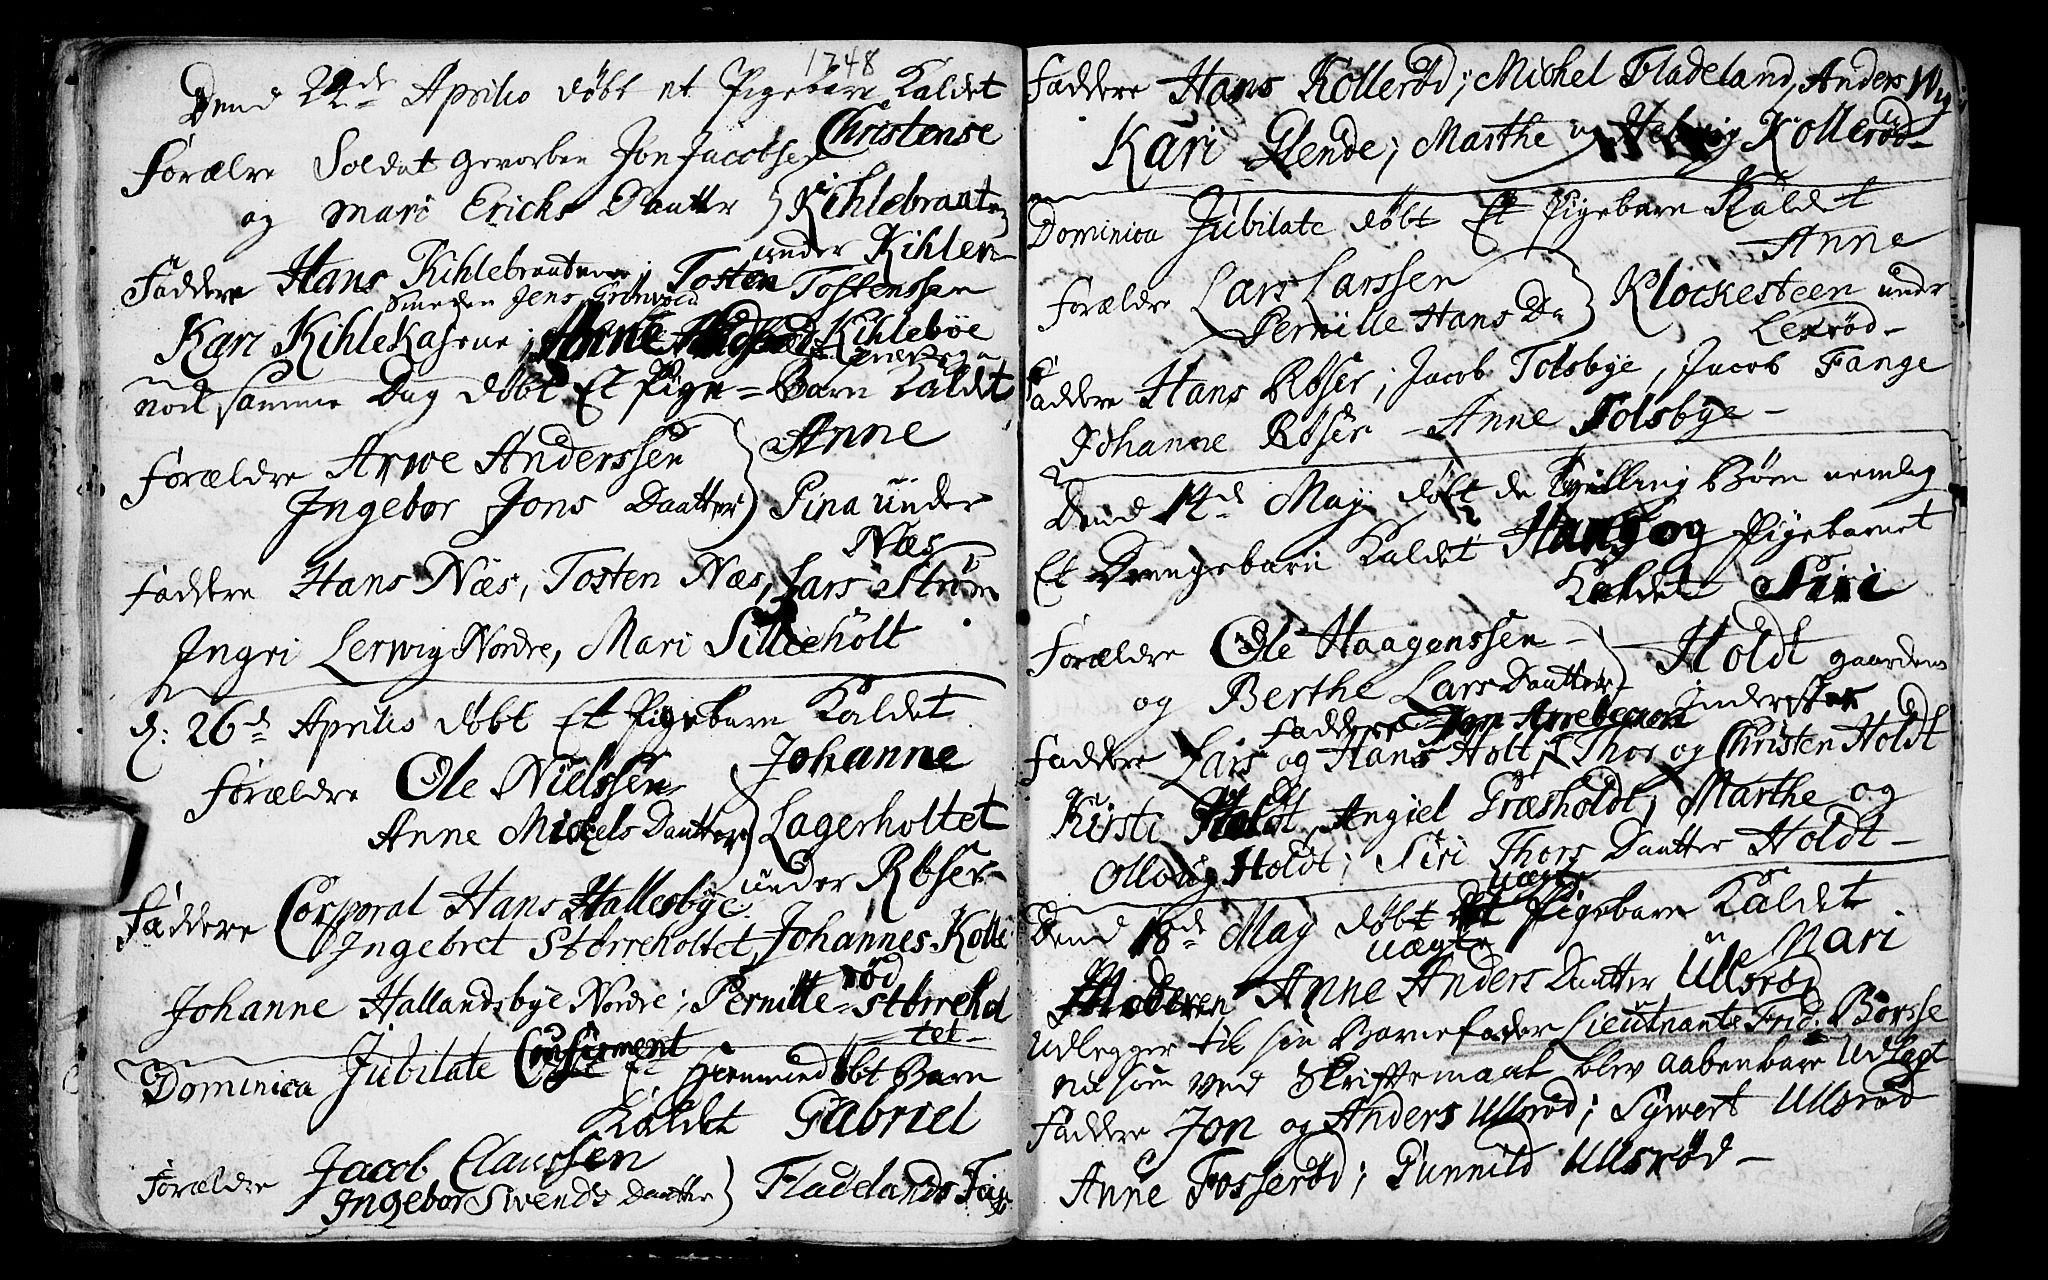 1748
Dend 22de Aprilis døbt et Pigebarn Kaldet
Christense
Forælre Soldat Gevorben Jon Jacobsen
og Mari Erichs Daatter } Kihlebraaten
under Kihlen
Faddere Hans Kihlebraatene; Tosten Tostenssen
Smeden Jens Grønvold
Kari Kihlekasene; Anne Kihlebøe
nock samme Dag døbt Et Pige-Barn Kaldet
Anne
Forældre Arwe Anderssen
Ingebor Jons Daatter } Pina under
Næs
Faddere Hans Næs, Tosten Næs, Lars Strøm
Ingri Lerwig Nordre, Mari Sillieholt
d: 26de Aprilis døbt Et Pigebarn Kaldet
Johanne
Forældre Ole Nielssen
Anne Mickels Daatter } Lagerholtet
under Røser
Faddere Corporal Hans Hallesbye
Ingebret Størreholtet, Johannes Kolle
rød
Johanne Hallandsbye Nordre; Pernille Størrehol
tet
Dominica Jubilate Confirment Et hiemmedøbt Barn
Kaldet Gabriel
Forældre Jacob Claussen
Ingebor Swends Daatter } Fladelands
Faddere Hans Kollerød; Michel Fladeland, Anders
Kari Glende; Marthe og Helwig Kollerød
Dominica Jubilate døbt Et Pigebarn Kaldet
Anne
Forældre Lars Larssen
Pernille Hans Da } Klockesteen under
Lerrød
Faddere Hans Røser; Jacob Tolsbye, Jacob Fange
Johanne Røser - Anne Tolsbye
Dend 14de May døbt de Tvilling Børn nemlig
Et Drengebarn Kaldet Hans og Pigebarnet
Kaldet Siri
Forældre Ole Haagenssen
og Berthe Lars Daatter } Holdt gaardens
Inderster
Faddere
Faddere Lars og Hans Holt, Thor og Christen Holdt
Kirsti Holdt, Angiel Græsholdt, Marthe og
Olloug Holdt; Siri Thors Daatter Holdt
uægte
Dend 18de May døbt Et Pigebarn Kaldet
uægte Mari
Moderen Anne Anders Daatter Ullsrød
Udlegger til sin Barnefader Lieutnante Frid: Borsse
ved Skriftemaal blev aabenbare Udlagt
Faddere Jon og Anders Ullsrød; Sywert Ullsrød
Anne Fosserød; Gunnild Ullsrød